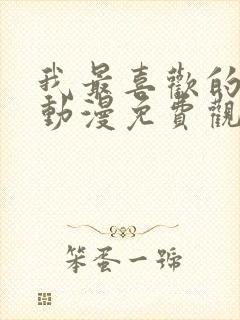 我最喜歡的
動漫免費觀
笨蛋一號